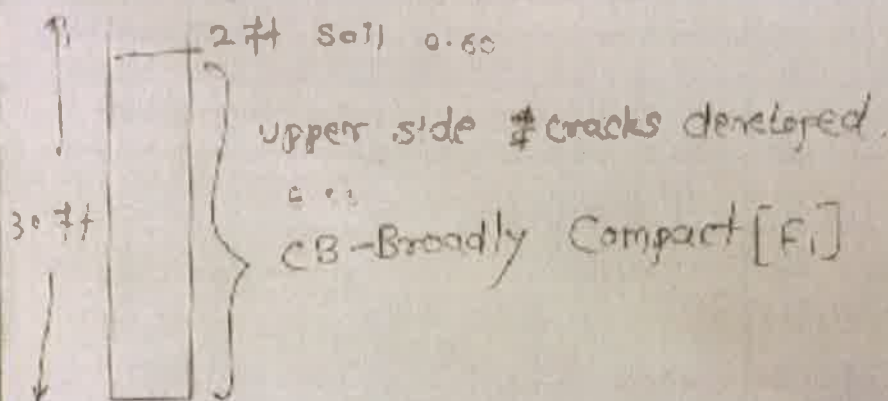 2 ft Soil 0.60
upper side cracks developed.
30 ft
CB-Broadly Compact [F1]